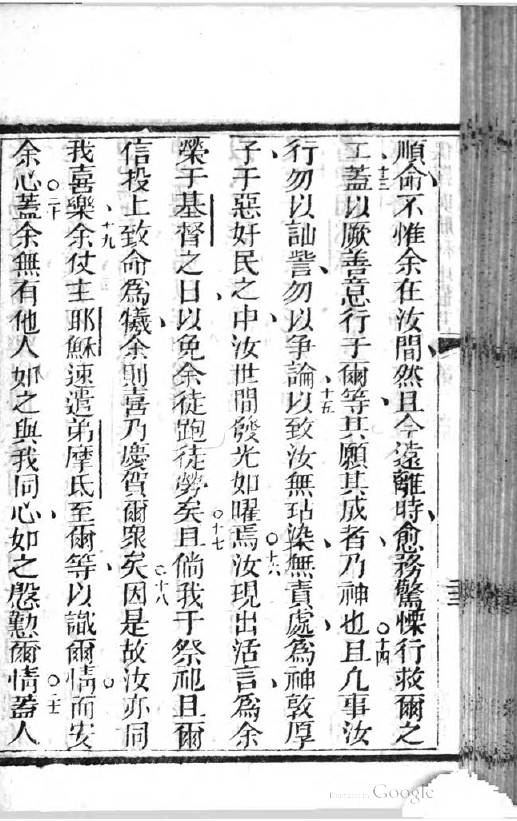 順命不惟余在汝間然且今遠離時愈務驚慄行救爾之
十三
工蓋以厥善意行于爾等其願其成者乃神也且凡事汝
十四
行勿以訕訾勿以争論以致汝無玷染無責處為神敦厚
十五
子于惡奸民之中汝世間發光如曜焉汝現出活言為余
十六
榮于基督之日以免余徒跑徒勞矣且倘我于祭祀且爾
十七
信投上致命為犧余則喜乃慶賀爾眾矣因是故汝亦同
十八
我喜樂余仗主耶穌速遣弟摩氐至爾等以識爾情而安
十九
余心蓋余無有他人如之與我同心如之慇懃爾情蓋人
二十
二十一
Digitized by Google